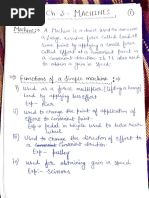 Ch-3 - MACHINES
①
Machines :→ A Machine is a device used to overcome
a large resistive force called load at
some point by applying a small force
called Effort at a convenient point in
a desired direction. It is also used to
obtain a gain in speed
Functions of a Simple machine :→
1) Used as a force multiplier (lifting a heavy
load by applying less effort
Exp - Jack
2) Used to change the point of application
of effort to convenient point.
Exp → Pedal in bicycle used to rotate rear
wheel.
3) Used to change the direction of effort to
a convenient direction.
Exp → pulley
4) Used for obtaining gain in speed
Exp → Scissors